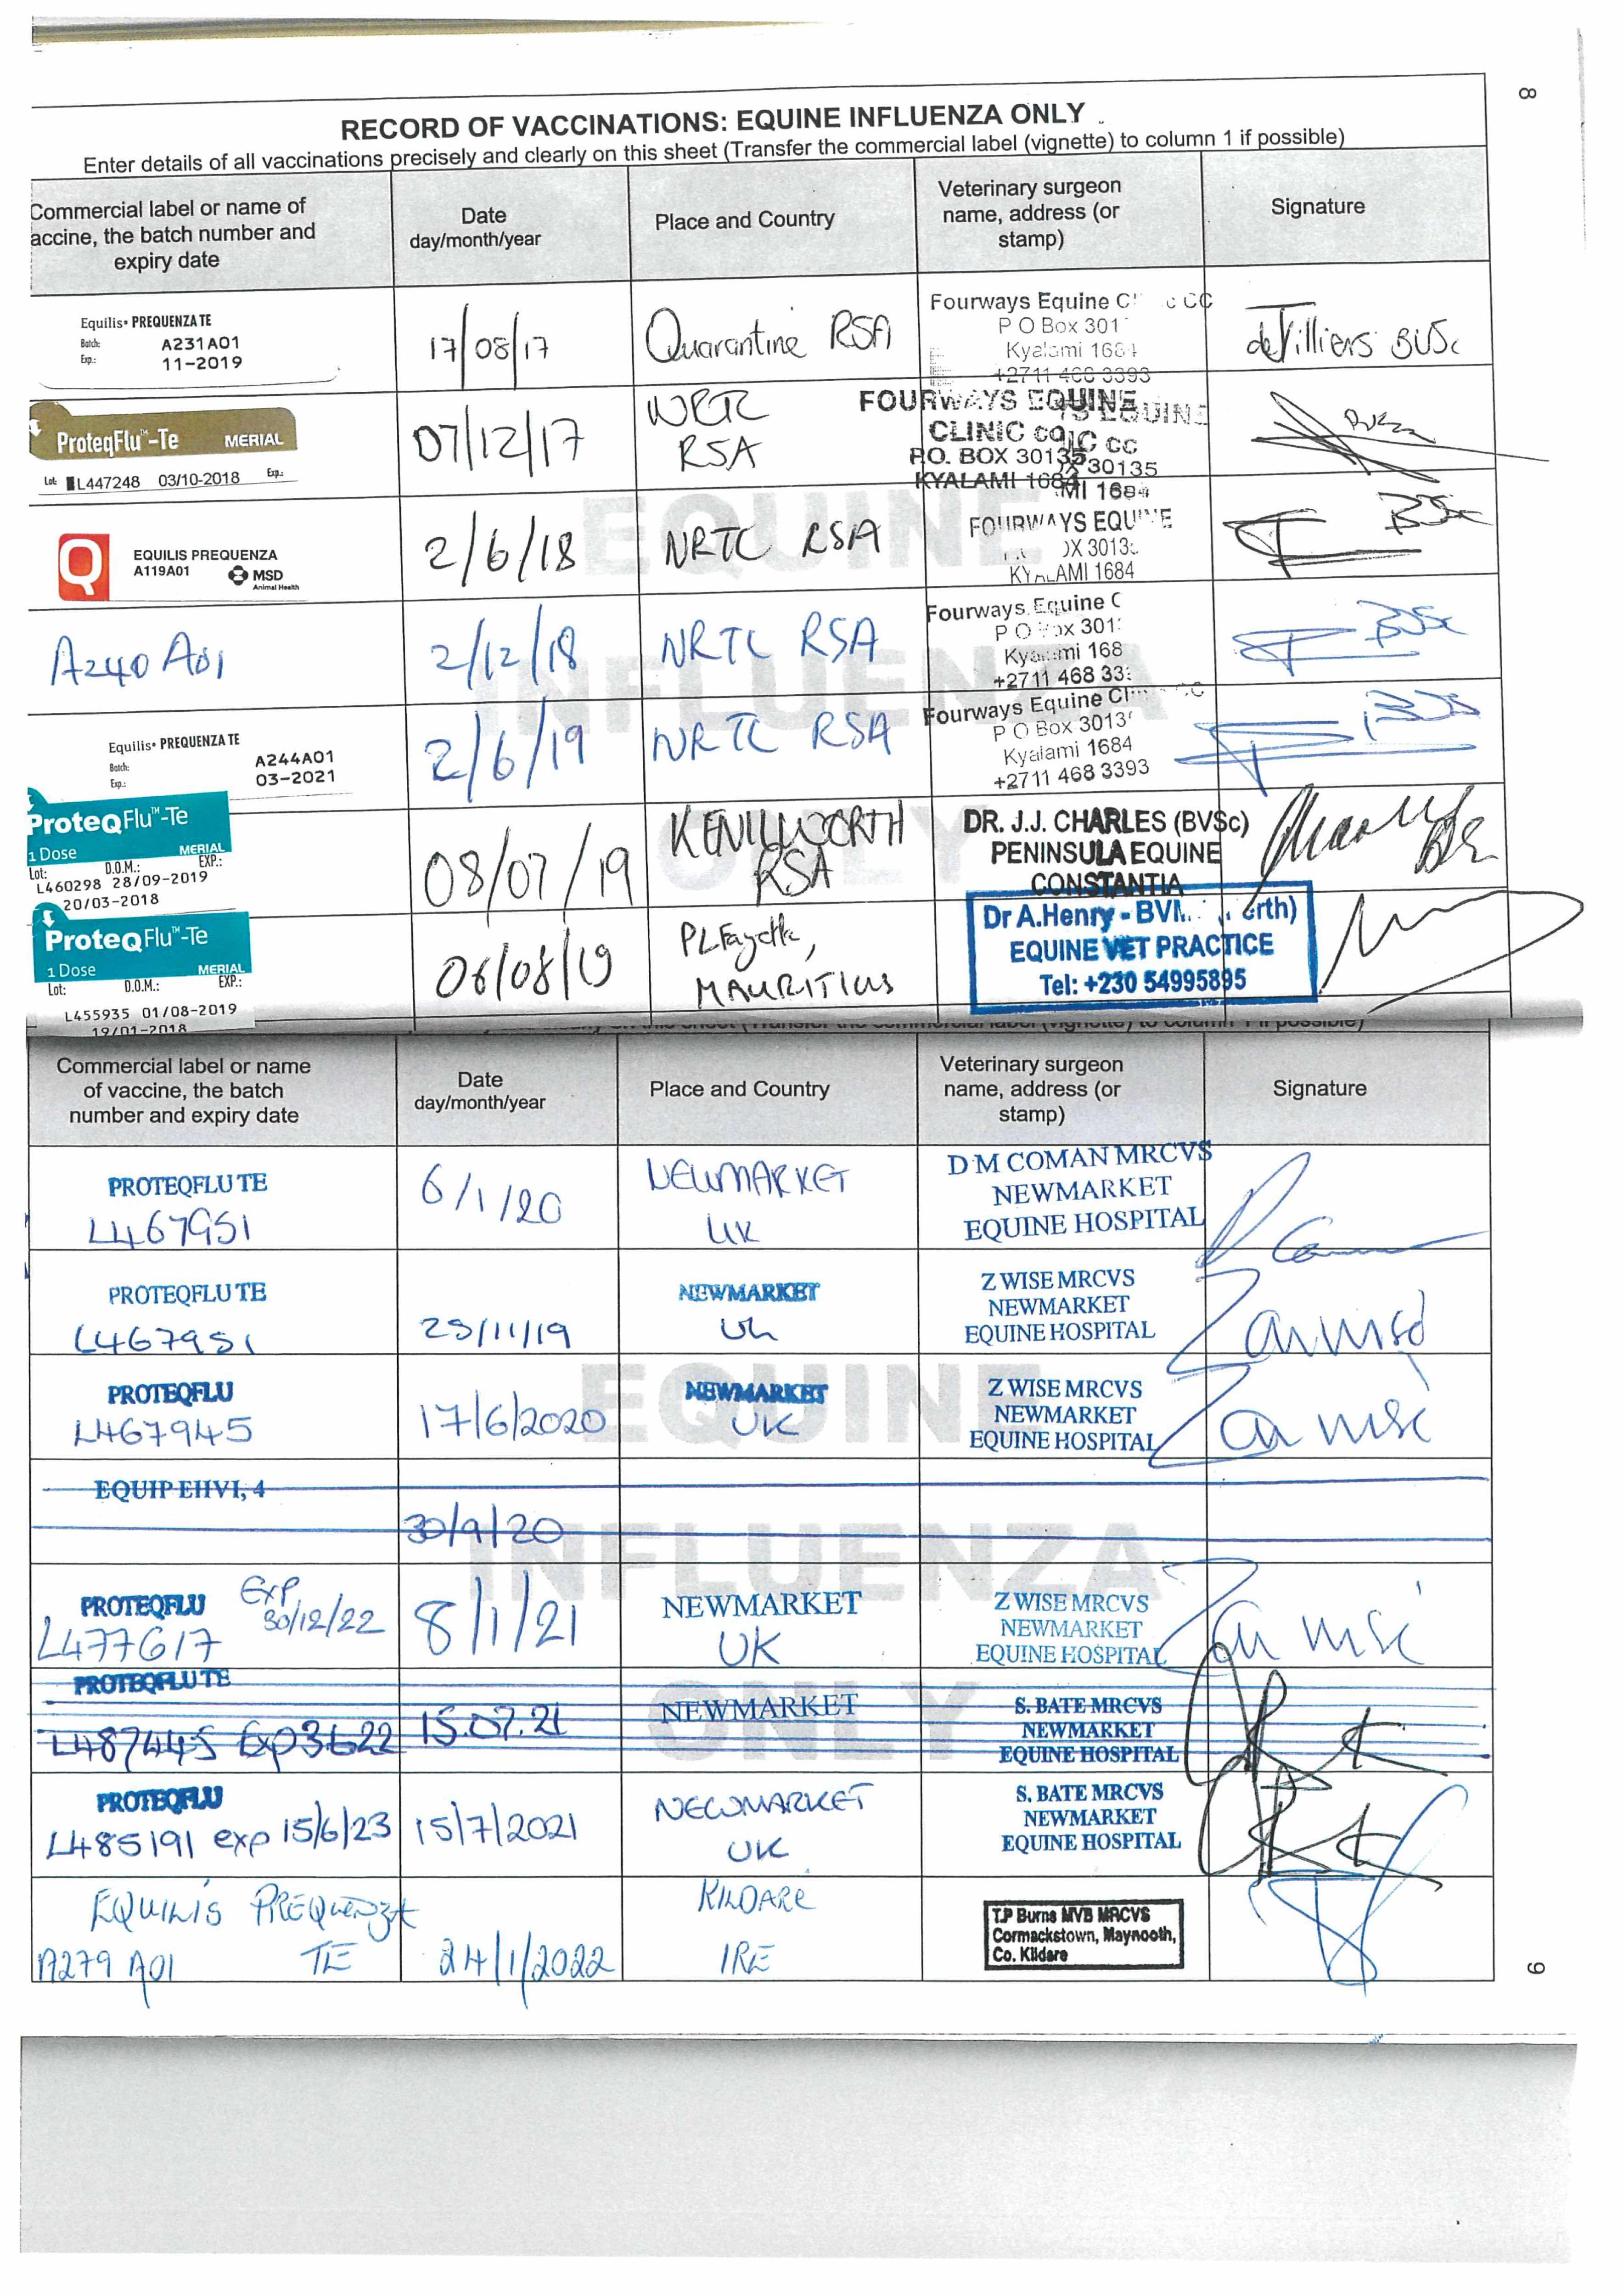 8
RECORD OF VACCINATIONS: EQUINE INFLUENZA ONLY
Enter details of all vaccinations precisely and clearly on this sheet (Transfer the commercial label (vignette) to column 1 if possible)
Commercial label or name of
accine, the batch number and
expiry date
Date
day/month/year
Place and Country
Veterinary surgeon
name, address (or
stamp)
Signature
Equilis• PREQUENZA TE
Batch: A231A01
Exp.: 11-2019
17/08/17
Quarantine RSA
Fourways Equine
P O Box 301
Kyalami 1684
+2711 468 3393
deVilliers BVSc
ProteqFlu™-Te MERIAL
Lot: L447248 03/10-2018 Exp.:
07/12/17
RSA
FOURWAYS EQUINE
CLINIC CC
P.O. BOX 30135
KYALAMI 1684
EQUILIS PREQUENZA
A119A01
MSD
Animal Health
2/6/18
NRTC RSA
FOURWAYS EQUINE
KYALAMI 1684
BVSc
A240 A01
2/12/18
NRTC RSA
Fourways Equine C
P O Box 301
Kyalami 168
+2711 468 33
BVSc
Equilis• PREQUENZA TE
Batch: A244A01
Exp.: 03-2021
2/6/19
NRTC RSA
Fourways Equine
P O Box 3013
Kyalami 1684
+2711 468 3393
ProteqFlu™-Te
1 Dose MERIAL
Lot: D.O.M.: EXP.:
L460298 28/09-2019
20/03-2018
08/07/19
KENILWORTH
RSA
DR. J.J. CHARLES (BVSc)
PENINSULA EQUINE
CONSTANTIA
ProteqFlu™-Te
1 Dose MERIAL
Lot: D.O.M.: EXP.:
L455935 01/08-2019
19/01-2018
06/08/19
MAURITIUS
Dr A.Henry - BVM
EQUINE VET PRACTICE
Tel: +230 54995895
Commercial label or name
of vaccine, the batch
number and expiry date
Date
day/month/year
Place and Country
Veterinary surgeon
name, address (or
stamp)
Signature
PROTEQFLU TE
L467951
6/1/20
NEWMARKET
UK
D M COMAN MRCVS
NEWMARKET
EQUINE HOSPITAL
PROTEQFLU TE
L467951
NEWMARKET
UK
Z WISE MRCVS
NEWMARKET
EQUINE HOSPITAL
PROTEQFLU
L467945
17/6/2020
NEWMARKET
UK
Z WISE MRCVS
NEWMARKET
EQUINE HOSPITAL
EQUIP EHV1, 4
30/9/20
PROTEQFLU EXP
L477617 30/12/22
8/1/21
NEWMARKET
UK
Z WISE MRCVS
NEWMARKET
EQUINE HOSPITAL
PROTEQFLU TE
L487445
15.07.21
NEWMARKET
S. BATE MRCVS
NEWMARKET
EQUINE HOSPITAL
PROTEQFLU
L485191 exp 15/6/23
15/7/2021
NEWMARKET
UK
S. BATE MRCVS
NEWMARKET
EQUINE HOSPITAL
EQUILIS PREQUENZA
A279 A01 TE
24/1/2022
KILDARE
IRE
T.P Burns MVB MRCVS
Cormackstown, Maynooth,
Co. Kildare
EQUINE
INFLUENZA
ONLY
9